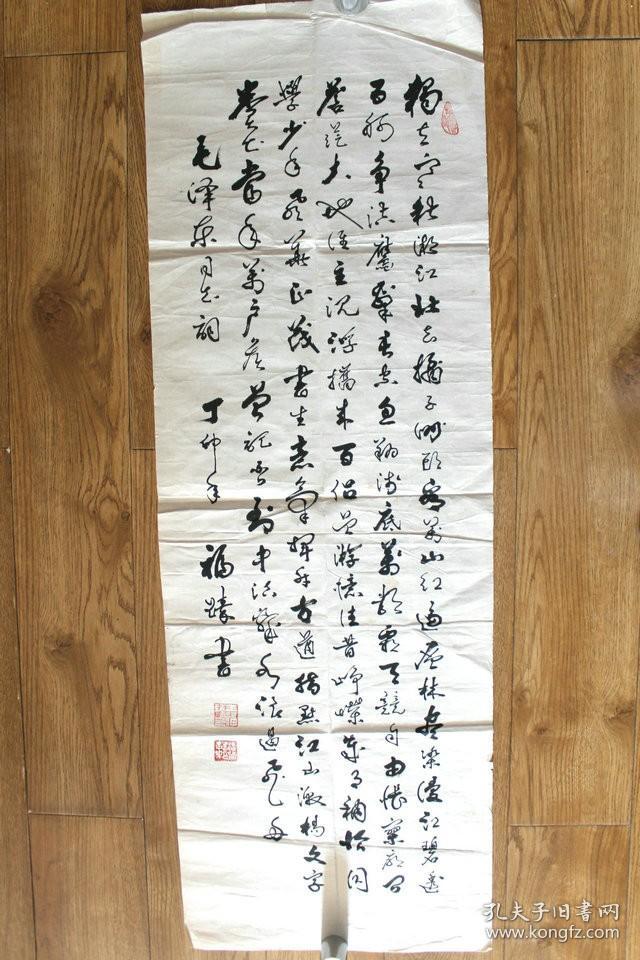 独立寒秋湘江北去橘子洲头看万山红遍层林尽染漫江碧透
百舸争流鹰击长空鱼翔浅底万类霜天竞自由怅寥廓问
苍茫大地谁主沉浮携来百侣曾游忆往昔峥嵘岁月稠恰同
学少年风华正茂书生意气挥斥方遒指点江山激扬文字
粪土当年万户侯曾记否到中流击水浪遏飞舟
毛泽东同志词 丁卯年 福臻书
孔夫子旧书网
www.kongfz.com